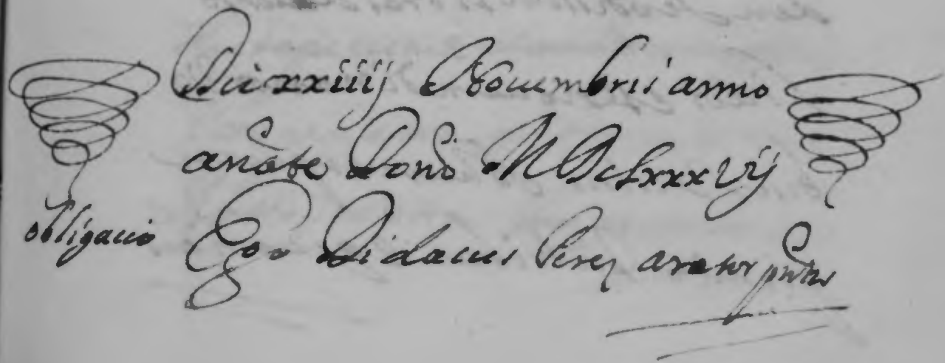 Die xxiiij Nouembris anno
a natte Domi MDclxxxvij
obligacio
Ego Didacus Perez arator